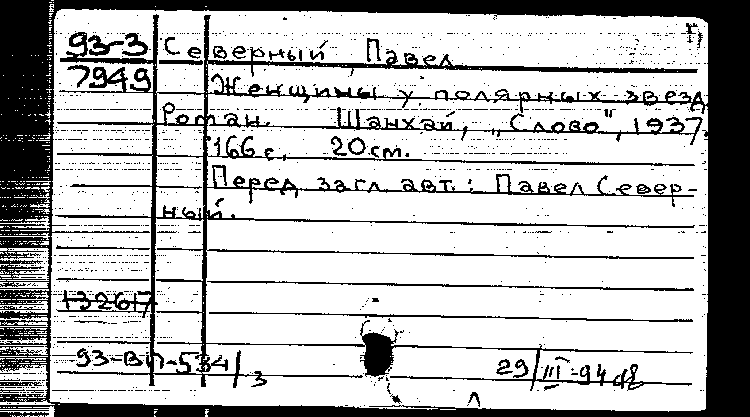 93-3 Северный Павел
7949 Женщины у полярных звезд.
Роман. Шанхай, "Слово", 1937.
166 с. 20 cm.
Перед загл. авт.: Павел Север-
ный.
132617
93-ВП-534/3
29/III-94